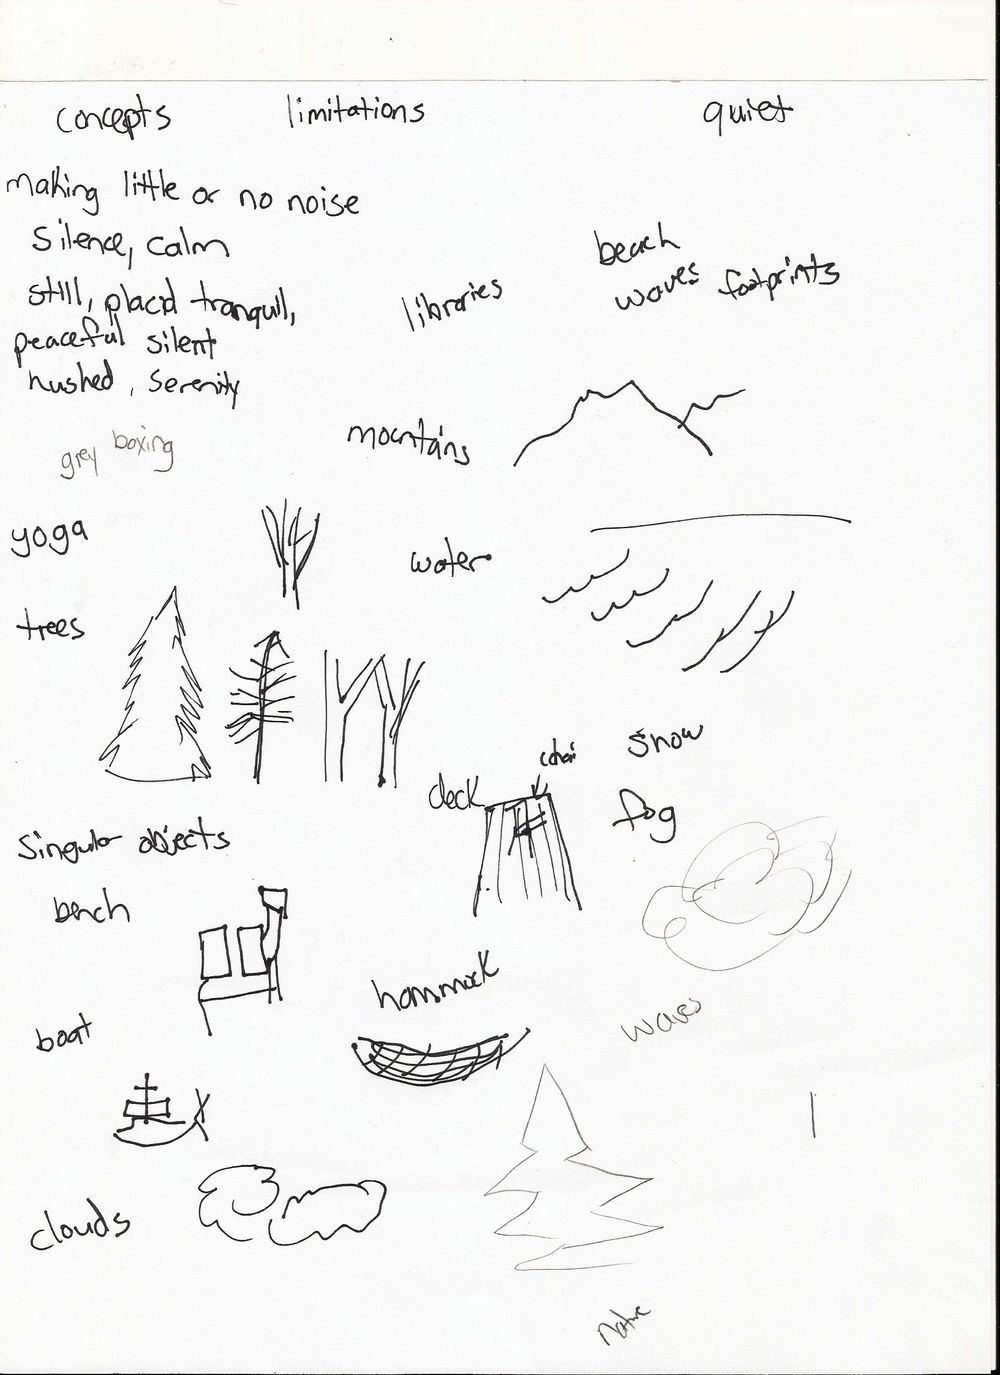 concepts limitations quiet
making little or no noise
silence, calm
still, placid tranquil,
peaceful silent
hushed, serenity
libraries
beach
waves footprints
grey boxing
mountains
yoga
water
trees
snow
chair
deck
fog
singular objects
bench
hammock
boat
waves
clouds
Nature